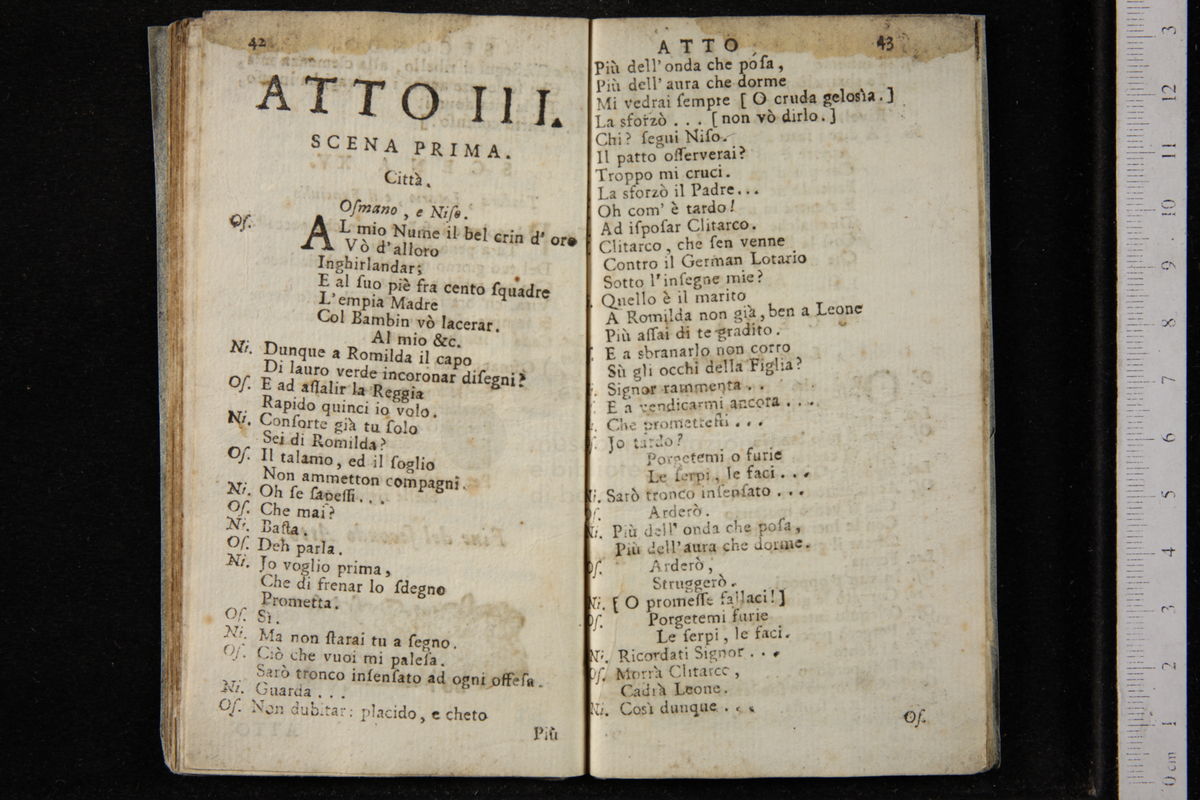 42
ATTO III.
SCENA PRIMA.
Città.
Oſmano, e Niſo.
Oſ. AL mio Nume il bel crin d' oro
Vò d'alloro
Inghirlandar;
E al ſuo piè fra cento ſquadre
L'empia Madre
Col Bambin vò lacerar.
Al mio &c.
Ni. Dunque a Romilda il capo
Di lauro verde incoronar diſegni?
Oſ. E ad aſſalir la Reggia
Rapido quinci io volo.
Ni. Conſorte già tu ſolo
Sei di Romilda?
Oſ. Il talamo, ed il ſoglio
Non ammetton compagni.
Ni. Oh ſe ſapeſſi...
Oſ. Che mai?
Ni. Baſta.
Oſ. Deh parla.
Ni. Jo voglio prima,
Che di frenar lo ſdegno
Prometta.
Oſ. Sì.
Ni. Ma non ſtarai tu a ſegno.
Oſ. Ciò che vuoi mi paleſa.
Sarò tronco inſenſato ad ogni offeſa.
Ni. Guarda...
Oſ. Non dubitar: placido, e cheto
Più
ATTO 43
Più dell'onda che póſa,
Più dell'aura che dorme
Mi vedrai ſempre [O cruda geloſìa.]
La sforzò... [non vò dirlo.]
Chi? ſegui Niſo.
Il patto oſſerverai?
Troppo mi cruci.
La sforzò il Padre...
Oh com' è tardo!
Ad iſpoſar Clitarco.
Clitarco, che ſen venne
Contro il German Lotario
Sotto l'inſegne mie?
Quello è il marito
A Romilda non già, ben a Leone
Più aſſai di te gradito.
E a sbranarlo non corro
Sù gli occhi della Figlia?
Signor rammenta..
E a vendicarmi ancora....
Che prometteſti...
Jo tardo?
Porgetemi o furie
Le ſerpi, le faci...
Ni. Sarò tronco inſenſato...
Oſ. Arderò.
Ni. Più dell' onda che poſa,
Più dell'aura che dorme.
Oſ. Arderò,
Struggerò.
Ni. [O promeſſe fallaci!]
Oſ. Porgetemi furie
Le ſerpi, le faci.
Ni. Ricordati Signor...
Oſ. Morrà Clitarco,
Cadrà Leone.
Ni. Così dunque...
Oſ.
0 cm 1 2 3 4 5 6 7 8 9 10 11 12 3